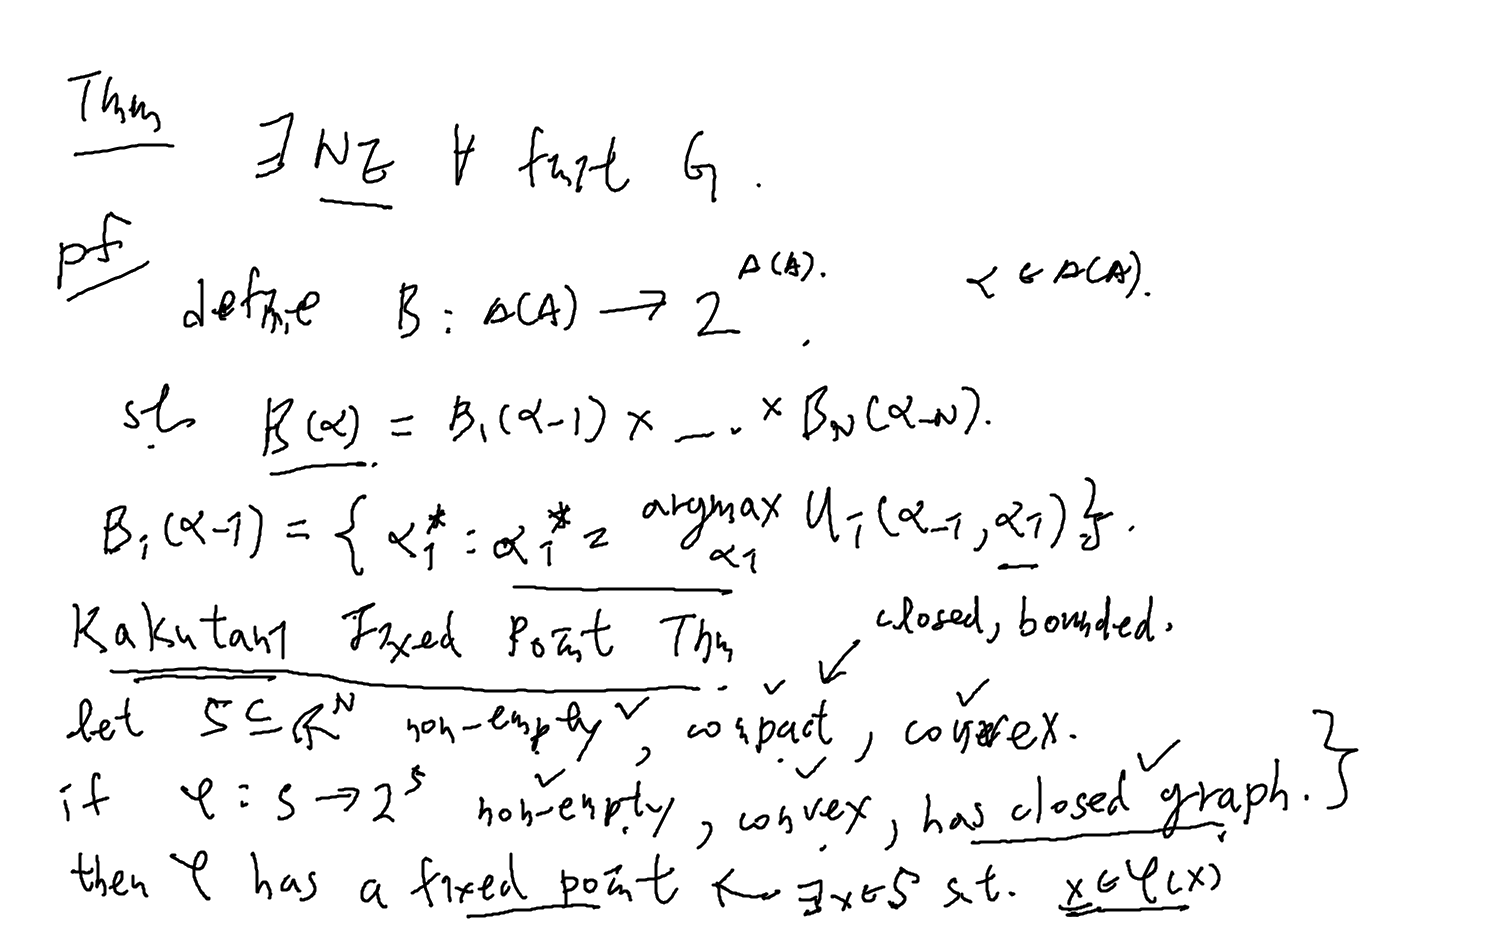 Thm
∃ NE ∀ finit G.
pf
define B : Δ(A) → 2^Δ(A). α ∈ Δ(A).
st. B(α) = B₁(α₋₁) × ... × B_N(α_-N).
Bᵢ(α₋ᵢ) = { αᵢ* : αᵢ* = argmax_αᵢ Uᵢ(α₋ᵢ, αᵢ) }.
Kakutani Fixed Point Thm. closed, bounded.
let S ⊆ ℝ^N non-empty ✓, compact ✓, convex ✓.
if φ : S → 2^S non-empty ✓, convex ✓, has closed graph ✓. }
then φ has a fixed point ← ∃x∈S s.t. x∈φ(x)